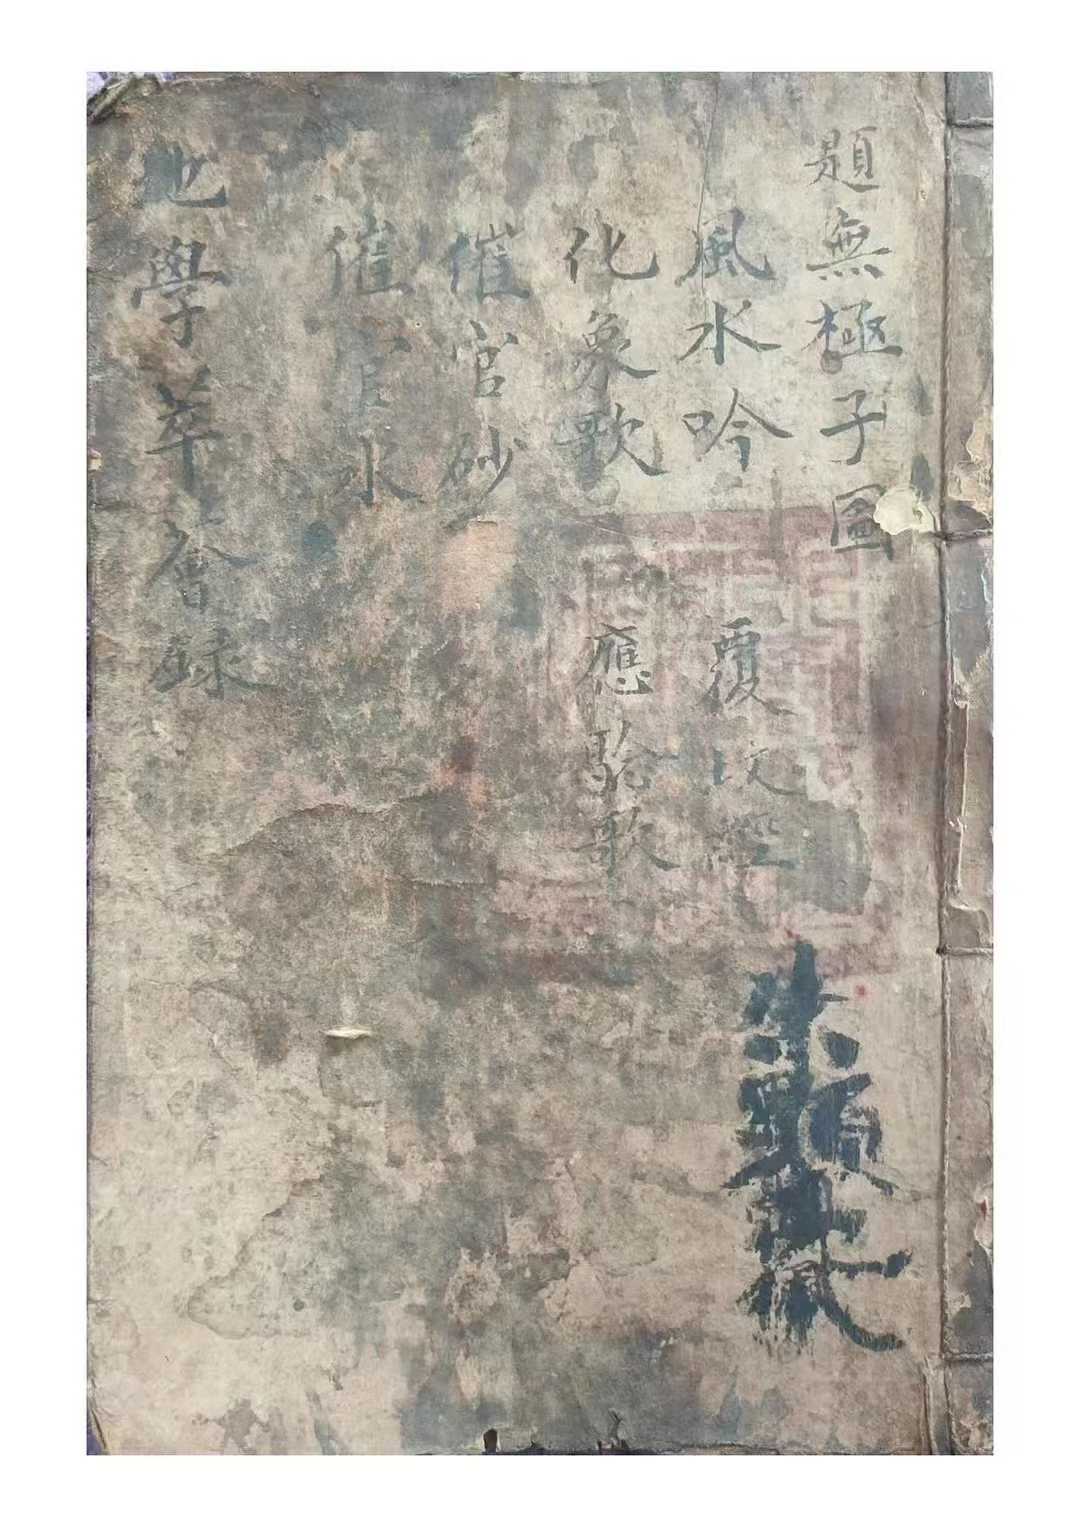 題無極子圖
風水吟
覆墳經
化象歌
應驗歌
催官砂
催官水
地學萃會錄